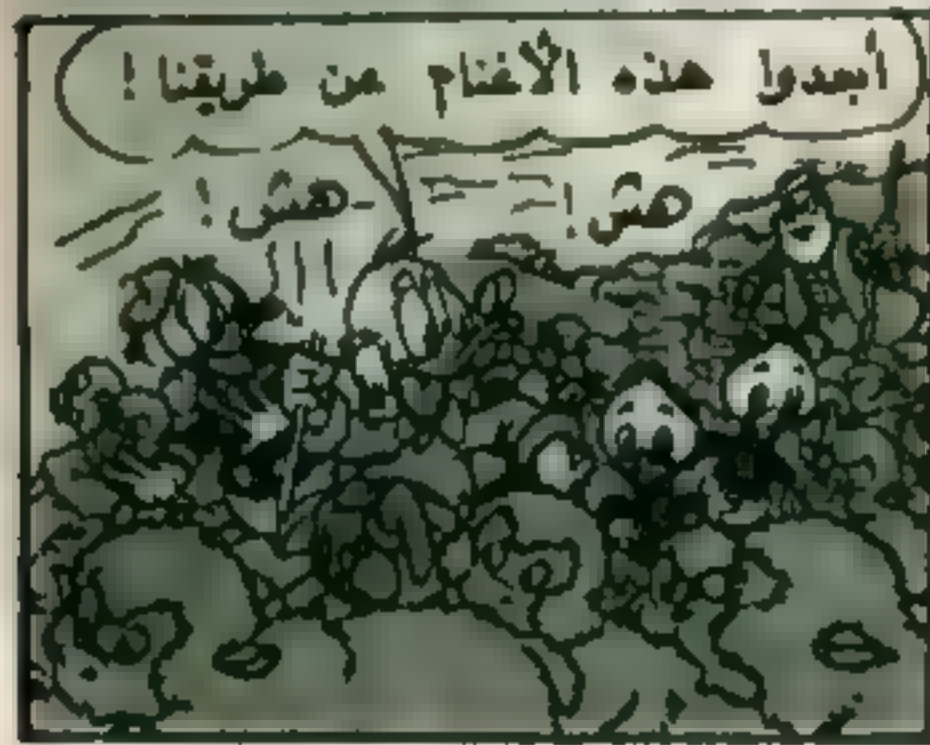 أبعدوا هذه الأغنام من طريقنا !
هش ! هش !